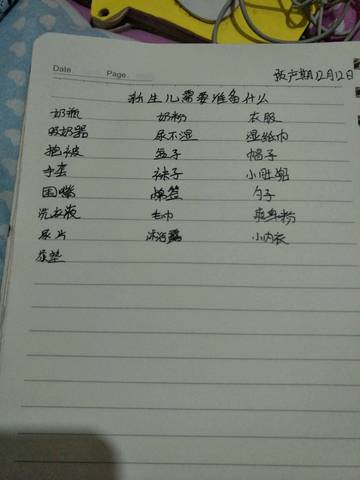 Date
Page
预产期12月12日
新生儿需要准备什么
奶瓶 奶粉 衣服
吸奶器 尿不湿 湿纸巾
抱被 盆子 帽子
手套 袜子 小肚兜
围嘴 棉签 勺子
洗衣液 毛巾 爽身粉
尿片 沐浴露 小内衣
尿垫